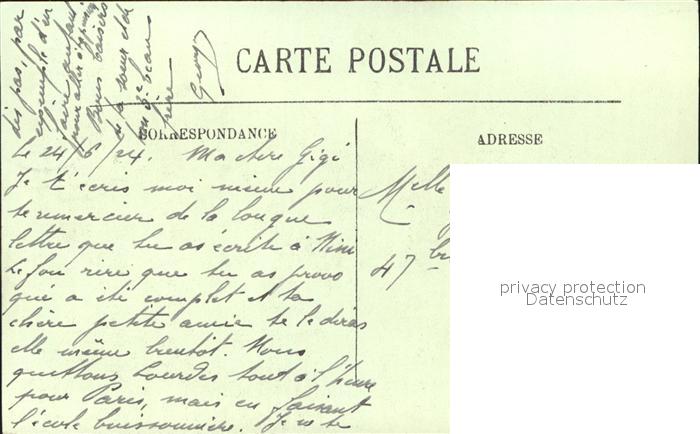 CARTE POSTALE
CORRESPONDANCE
ADRESSE
Le 24/6/24. Ma chère Gigi
Je t'écris moi même pour
te remercier de la longue
lettre que tu as écrite à Mimi
Le fou rire que tu as provo
qué a été complet et ta
chère petite amie te le diras
elle même bientôt. Nous
quittons Lourdes tout à l'heure
pour Paris, mais en faisant
l'école buissonnière. Je ne te
dis pas, par
exemple d'en
faire autant
pour aller
Bons baisers
de ta soeur et de
ton
frère
Guy
Melle
47 bis
privacy protection
Datenschutz